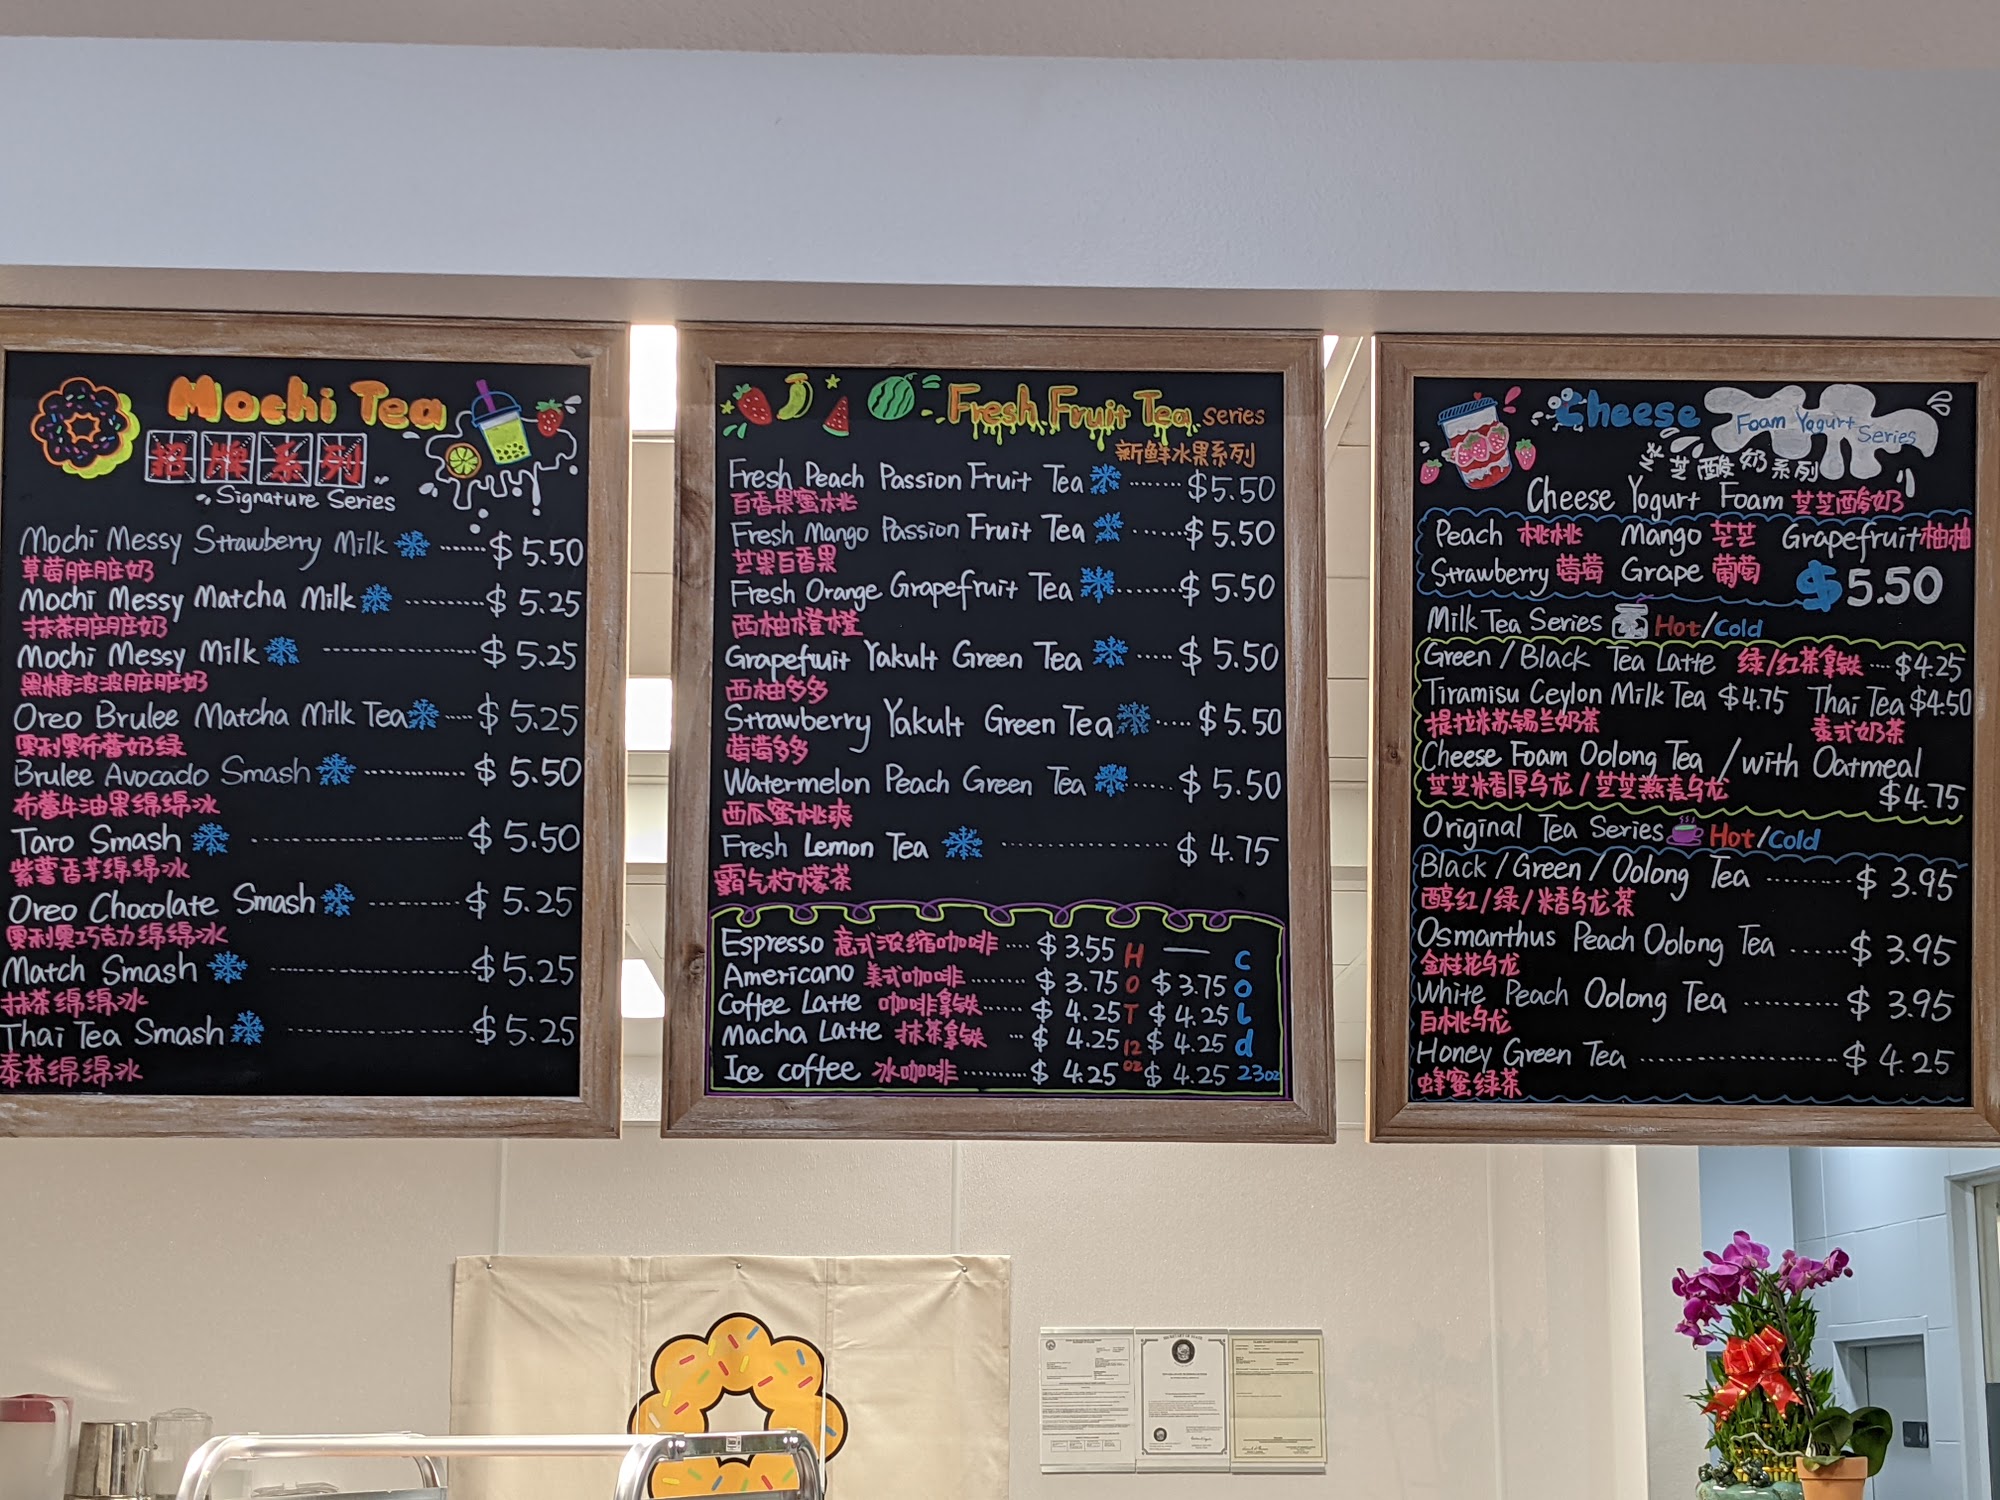 Mochi Tea
招牌系列
Signature Series
Mochi Messy Strawberry Milk ...... $5.50
草莓脏脏奶
Mochi Messy Matcha Milk ......... $5.25
抹茶脏脏奶
Mochi Messy Milk ............... $5.25
黑糖波波脏脏奶
Oreo Brulee Matcha Milk Tea .... $5.25
奥利奥布蕾奶绿
Brulee Avocado Smash ............ $5.50
布蕾牛油果绵绵冰
Taro Smash ...................... $5.50
紫薯香芋绵绵冰
Oreo Chocolate Smash ............ $5.25
奥利奥巧克力绵绵冰
Match Smash ..................... $5.25
抹茶绵绵冰
Thai Tea Smash .................. $5.25
泰茶绵绵冰
Fresh Fruit Tea Series
新鲜水果系列
Fresh Peach Passion Fruit Tea ....... $5.50
百香果蜜桃
Fresh Mango Passion Fruit Tea ...... $5.50
芒果百香果
Fresh Orange Grapefruit Tea ....... $5.50
西柚橙橙
Grapefruit Yakult Green Tea ..... $5.50
西柚多多
Strawberry Yakult Green Tea ..... $5.50
莓莓多多
Watermelon Peach Green Tea ..... $5.50
西瓜蜜桃爽
Fresh Lemon Tea ................ $4.75
霸气柠檬茶
Espresso 意式浓缩咖啡 .... $3.55 —
Americano 美式咖啡 ........ $3.75 $3.75
Coffee Latte 咖啡拿铁 ...... $4.25 $4.25
Macha Latte 抹茶拿铁 ... $4.25 $4.25
Ice coffee 冰咖啡 .......... $4.25 $4.25
HOT 12oz
COLd 23oz
Cheese Foam Yogurt Series
芝芝酸奶系列
Cheese Yogurt Foam 芝芝酸奶
Peach 桃桃 Mango 芒芒 Grapefruit 柚柚
Strawberry 莓莓 Grape 葡萄 $5.50
Milk Tea Series Hot/Cold
Green / Black Tea Latte 绿/红茶拿铁 .... $4.25
Tiramisu Ceylon Milk Tea $4.75 Thai Tea $4.50
提拉米苏锡兰奶茶 泰式奶茶
Cheese Foam Oolong Tea / with Oatmeal
芝芝米香厚乌龙 / 芝芝燕麦乌龙 $4.75
Original Tea Series Hot/Cold
Black / Green / Oolong Tea ......... $3.95
醇红/绿/米香乌龙茶
Osmanthus Peach Oolong Tea ...... $3.95
金桂花乌龙
White Peach Oolong Tea .......... $3.95
白桃乌龙
Honey Green Tea .................... $4.25
蜂蜜绿茶